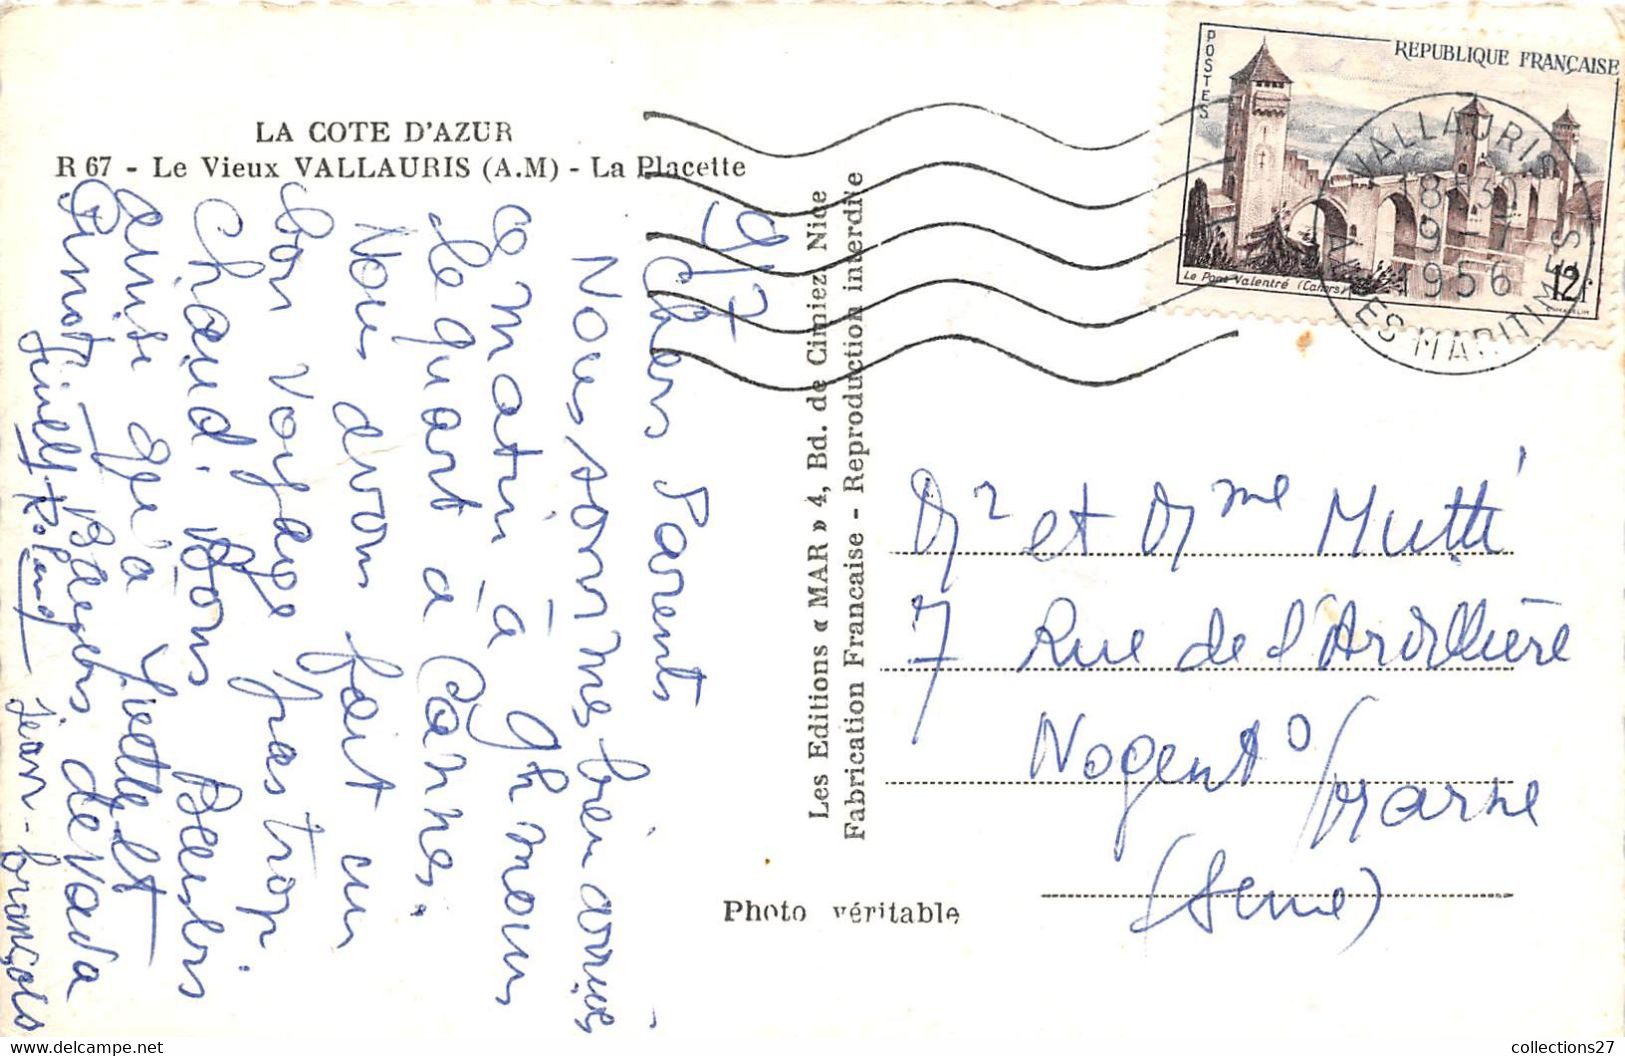 LA COTE D'AZUR
R 67 - Le Vieux VALLAURIS (A.M) - La Placette
9/7
Chers Parents
Nous sommes bien arrivés
ce matin à 9h moins
le quart à Cannes.
Nous avons fait un
bon voyage pas trop
chaud. Bons Baisers
ainsi qu'à Yvette et
Baisers de Vada
Roland
Jean-françois
Les Editions « MAR » 4, Bd. de Cimiez, Nice
Fabrication Francaise - Reproduction interdite
Photo véritable
POSTES
REPUBLIQUE FRANÇAISE
Le Pont Valentré (Cahors)
12f
VALLAURIS
18H30
9-7
1956
ALPES-MARITIMES
Mr et Mme Mutté
7 Rue de l'Artillière
Nogent s/Marne
(Seine)
collections27